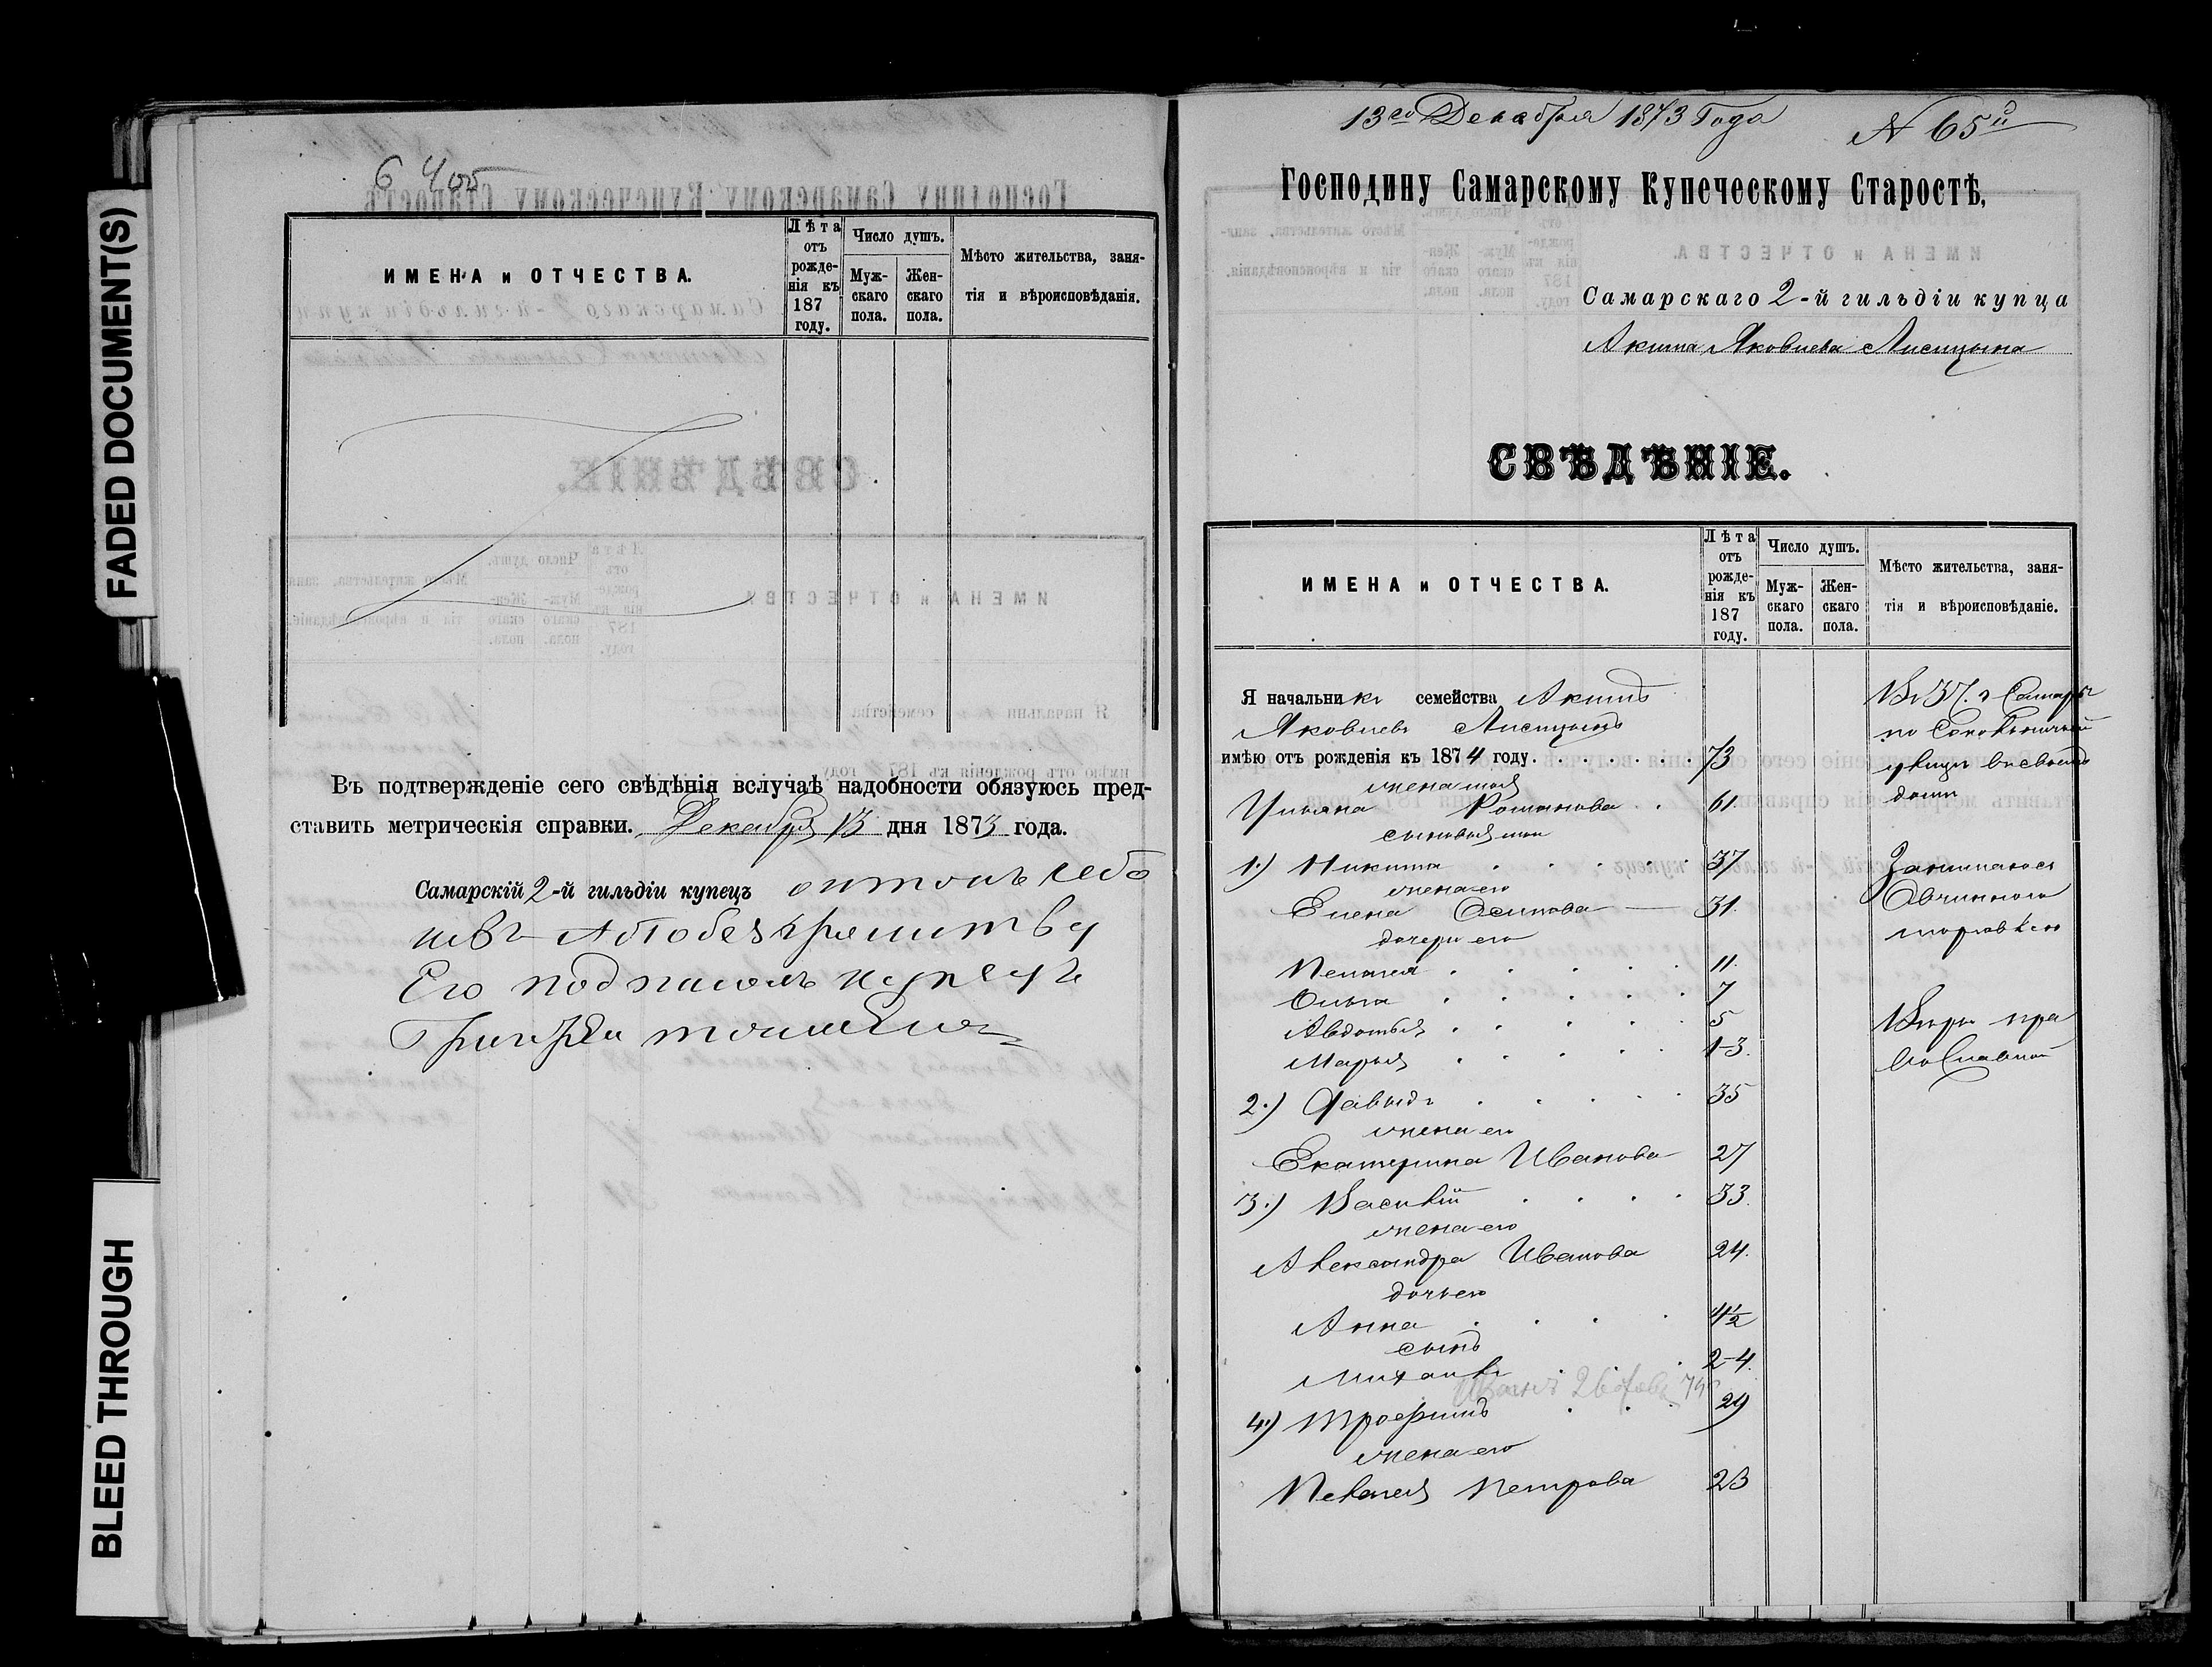 FADED DOCUMENT(S)
BLEED THROUGH
6
ИМЕНА и ОТЧЕСТВА.
Лѣта отъ рожде-нія къ 187 году.
Число душъ.
Муж-скаго пола.
Жен-скаго пола.
Мѣсто жительства, заня-
тія и вѣроисповѣданія.
Въ подтвержденіе сего свѣдѣнія вслучаѣ надобности обязуюсь пред-
ставить метрическія справки. Декабря 13 дня 1873 года.
Самарскій 2-й гильдіи купецъ
Его купецъ
13го Декабря 1873 Года
N 65й
Господину Самарскому Купеческому Старостѣ,
Самарскаго 2-й гильдіи купца
Акима Яковлева Лисицына
СВѢДѢНІЕ.
ИМЕНА и ОТЧЕСТВА.
Лѣта отъ рожде-нія къ 187 году.
Число душъ.
Муж-скаго пола.
Жен-скаго пола.
Мѣсто жительства, заня-
тія и вѣроисповѣданіе.
Я начальникъ семейства Акимъ
Яковлевъ Лисицынъ
имѣю отъ рожденія къ 1874 году. 73
жена моя
Ульяна Романова 61.
сыновья мои
1.) Никита 37
жена его
Елена Осипова 31.
дочери его
Пелагея 11.
Ольга 7
Авдотья 5
Марья 1-3.
2.) Давыдъ 35
жена его
Екатерина Иванова 27
3.) Василій 33.
жена его
Александра Иванова 24.
дочь его
Анна 4½
сынъ
Михаилъ 2-4.
4.) Трофимъ 29
жена его
Пелагея Петрова 23
въ Самарѣ
по
улицѣ въ своемъ
домѣ
Занимаюсь
Овчинною
торговлею
Вѣры пра
вославной